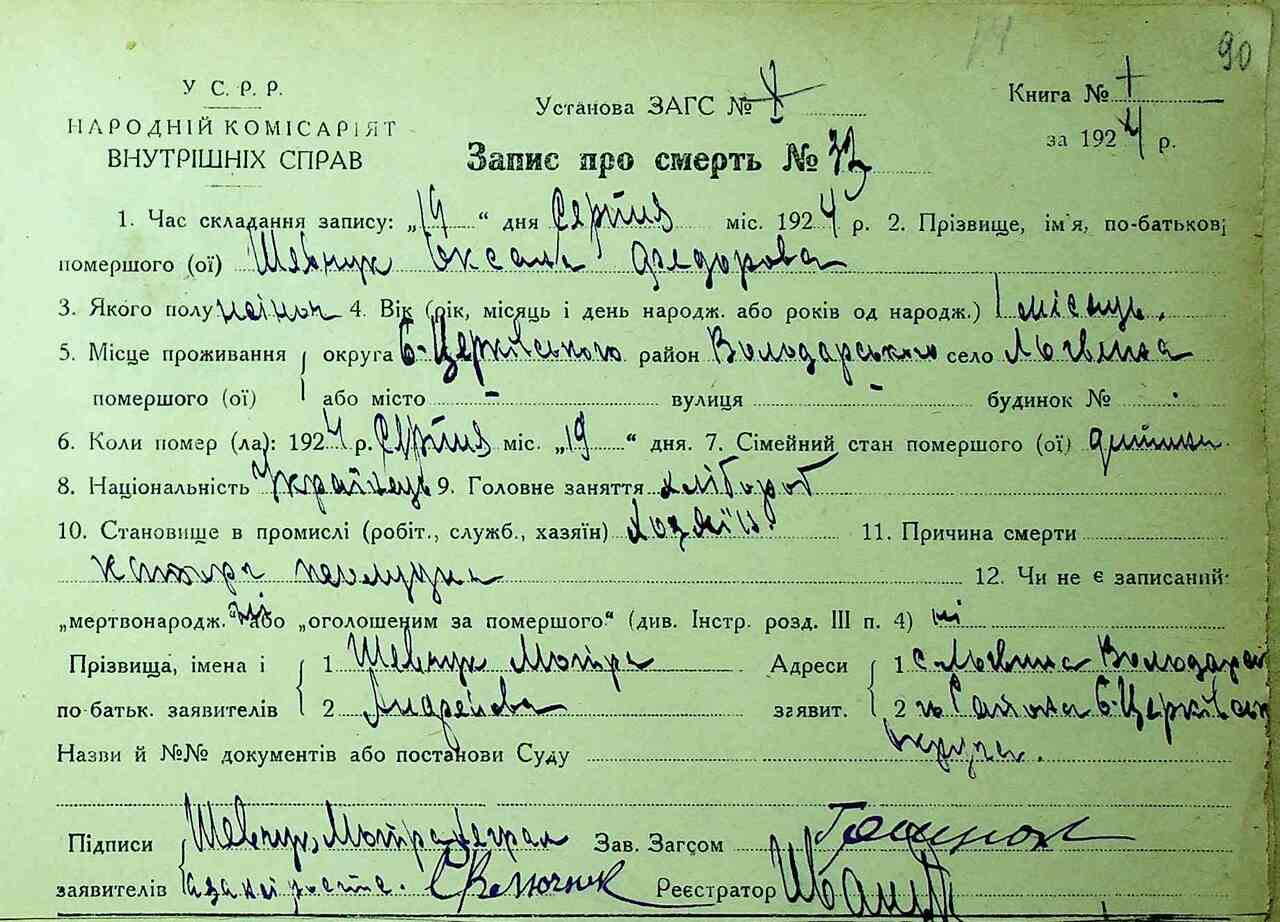 90
У С. Р. Р.
НАРОДНІЙ КОМІСАРІЯТ
ВНУТРІШНІХ СПРАВ
Установа ЗАГС №
Книга №
за 1924 р.
Запис про смерть № 33
1. Час складання запису: „19 “ дня Серпня міс. 1924 р. 2. Прізвище, ім'я, по-батькові
помершого (ої) Шевчук Оксана Федорова
3. Якого полу жіноч 4. Вік (рік, місяць і день народж. або років од народж.) 1 місяць.
5. Місце проживання округа Б-Церківського район Володарського село Логвина
помершого (ої) або місто - вулиця - будинок №
6. Коли помер (ла): 1924 р. Серпня міс. „19 “ дня. 7. Сімейний стан помершого (ої) дитина
8. Національність Українець 9. Головне заняття хлібороб
10. Становище в промислі (робіт., служб., хазяїн) Хозяїн 11. Причина смерти
12. Чи не є записаний:
„мертвонародж.“ ні або „оголошеним за помершого“ (див. Інстр. розд. III п. 4) ні
Прізвища, імена і 1 Шевчук Мотря Адреси 1 с Логвина Володарсь
по-батьк. заявителів 2 Андреїва заявит. 2 го Района Б-Церківськ
округи.
Назви й №№ документів або постанови Суду
Підписи Шевчук Мотра Зав. Загсом
заявителів Реєстратор